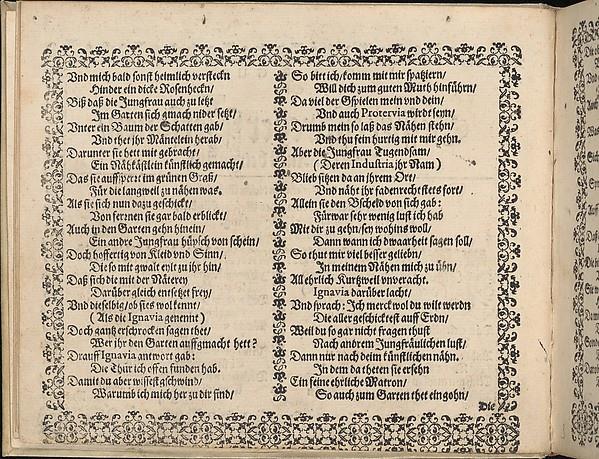 Vnd mich bald sonst heimlich versteckn
Hinder ein dicke Rosenheckn/
Biß daß die Jungfrau auch zu letzt
Im Garten sich gmach nider setzt/
Vnter ein Baum der Schatten gab/
Vnd thet ihr Mäntelein herab/
Darunter sie hett mit gebracht/
Ein Nähkästlein künstlich gemacht/
Das sie auffsperrt im grünen Graß/
Für die langweil zu nähen was.
Als sie sich nun dazu geschickt/
Von fernen sie gar bald erblickt/
Auch in den Garten gehn hinein/
Ein andre Jungfrau hüpsch von schein/
Doch hoffertig von Kleid vnd Sinn/
Die so mit gwalt eylt zu ihr hin/
Daß sich die mit der Näterey
Darüber gleich entsetzet frey/
Vnd dieselbig/ ob sies wol kennt/
( Als die Ignavia genennt )
Doch gantz erschrocken sagen thet/
Wer ihr den Garten auffgmacht hett?
Drauff Ignavia antwort gab:
Die Thür ich offen funden hab.
Damit du aber wissest gschwind/
Warumb ich mich her zu dir find/
So bitt ich/ komm mit mir spatziern/
Will dich zum guten Muth hinführn/
Da viel der Gspielen mein vnd dein/
Vnd auch Protervia wirdt seyn/
Drumb mein so laß das Nähen stehn/
Vnd thu fein hurtig mit mir gehn.
Aber die Jungfrau Tugendsam/
( Deren Industria ihr Nam )
Blieb sitzen da an ihrem Ort/
Vnd näht ihr fadenrecht stets fort/
Allein sie den Bscheid von sich gab:
Fürwar sehr wenig lust ich hab
Mit dir zu gehn/ sey wohins woll/
Dann wann ich d warheit sagen soll/
So thut mir viel besser geliebn/
In meinem Nähen mich zu übn/
All ehrlich Kurtzweil vnveracht.
Ignavia darüber lacht/
Vnd sprach: Ich merck wol du wilt werdn
Die aller geschicktest auff Erdn/
Weil du so gar nicht fragen thust
Nach andrem Jungfräulichen lust/
Dann nur nach deim künstlichen nähn.
In dem da theten sie ersehn
Ein feine ehrliche Matron/
So auch zum Garten thet eingohn/
Die